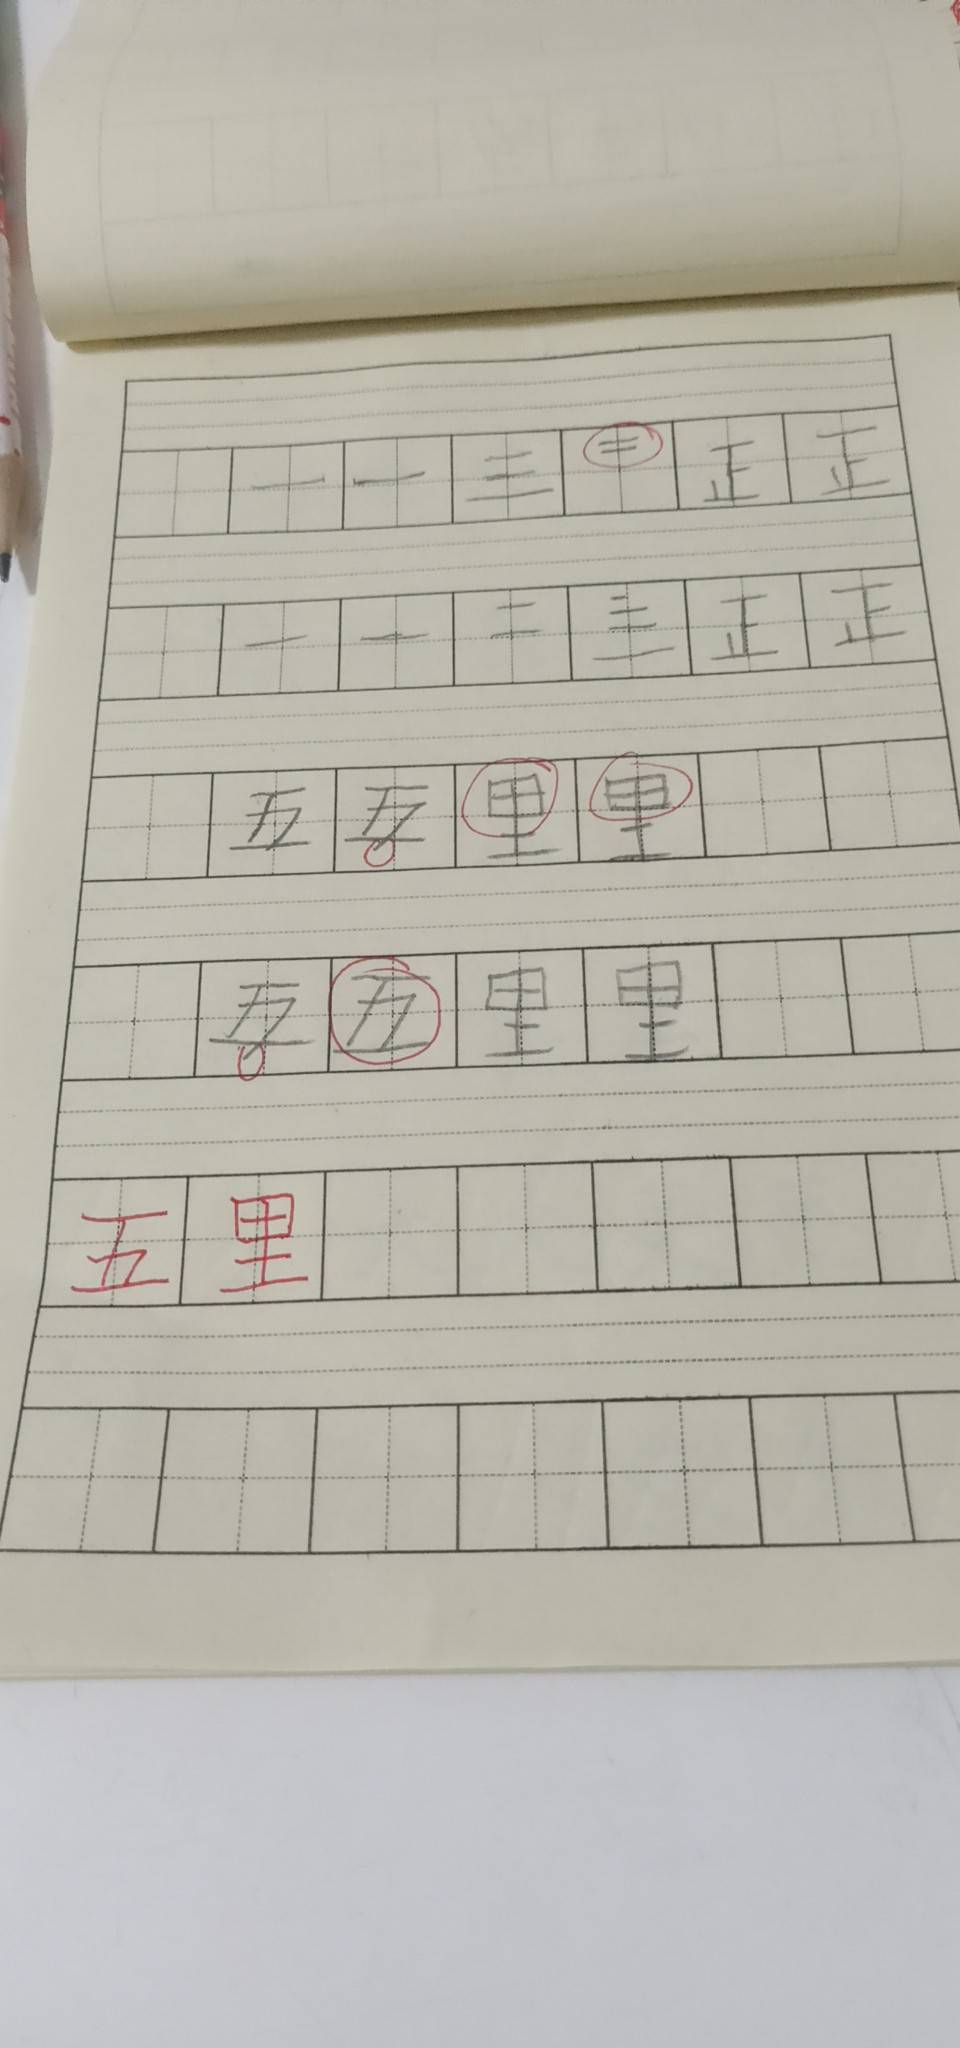 一 一 三 二 正 正
一 一 二 三 正 正
五 五 里 里
五 五 里 里
五 里